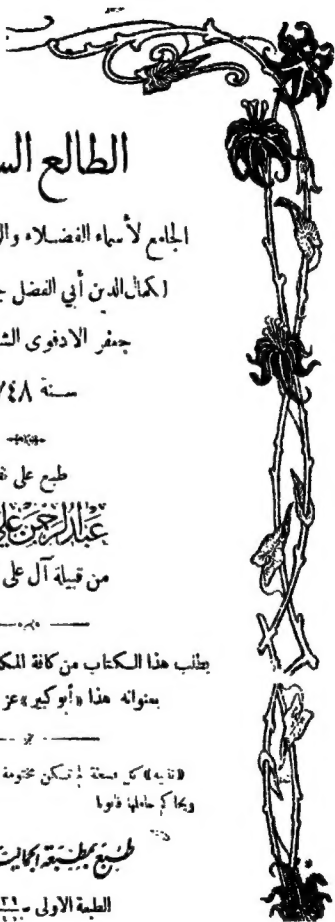 الطالع الس
الجامع لأسماء الفضلاء وال
لكمال الدين أبي الفضل ج
جعفر الادفوى الش
سنة ٧٤٨
طبع على نف
عبد الرحمن علي
من قبيلة آل على
يطلب هذا الكتاب من كافة المك
بعنوانه هذا «أبو كبير» عز
«تنبيه» كل نسخة لم تكن مختومة
ويحاكم حاملها قانونا
طبع بمطبعة الجمالية
الطبعة الاولى